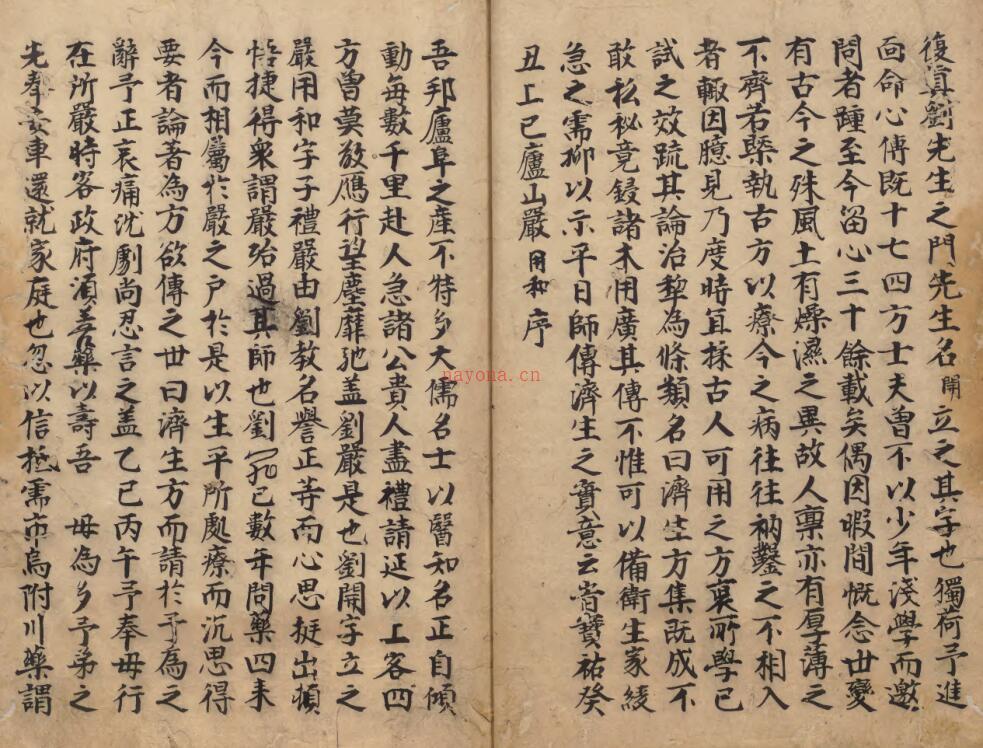 復眞劉先生之門先生名開立之其字也獨荷予進
面命心傳既十七四方士夫曾不以少年淺學而邀
問者踵至今留心三十餘載矣偶因暇間慨念世變
有古今之殊風土有燥濕之異故人禀亦有厚薄之
不齊若槩執古方以療今之病往往枘鑿之不相入
者輙因臆見乃度時冝採古人可用之方裒所學已
試之效疏其論治犂為條類名曰濟生方集既成不
敢私秘竟鋟諸木用廣其傳不惟可以備衛生家緩
急之需抑以示平日師傳濟生之實意云旹寶祐癸
丑上巳廬山嚴用和序
吾邦廬阜之産不特多大儒名士以醫知名正自傾
動每數千里赴人急諸公貴人盡禮請延以上客四
方曽莫敢鴈行望塵靡弛盖劉嚴是也劉開字立之
嚴用和字子禮嚴由劉教名譽正等而心思挺出頓
悟捷得衆謂嚴殆過其師也劉死已數年問藥四来
今而相屬於嚴之戸於是以生平所處療而沉思得
要者論著為方欲傳之世曰濟生方而請於予為之
辭予正哀痛沈劇尚忍言之盖乙巳丙午予奉母行
在所嚴時客政府湏善藥以壽吾 母為多予弟之
先奉安車還就家庭也忽以信抵需市烏附川藥謂
nayona.cn